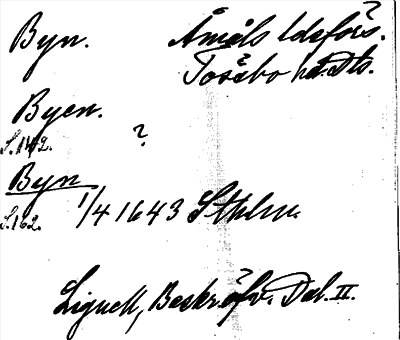 Byn. Åmåls ldsförs.
Tössbo hd. Dls.
Byen.
S. 142. ?
Byn
S. 162. 1/4 1643 Sthlm.
Lignell, Beskr. öfv. Dal. II.